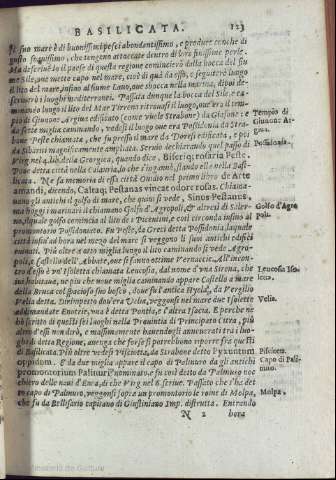 BASILICATA. 123
Il suo mare è di buonissimi pesci abondantissimo, e produce conche di
gusto
che tengono attaccate dentro di loro finissime perle.
Ma descriuerò il paese di questa regione cominciero dalla bocca del fiu
me Sile, mette capo nel mare, cioè di quà da esso, e seguiterò lungo
il lito del mare, insino al fiume Lauo, oue sbocca nella marina, dipoi de
scriuerò i luoghi mediterranei. Passata dunque la bocca del Sile, e ca
minando lungo il lito del Mar Tirreno ritrouasi il luogo, oue era il tem
pio di Giunone Argiua edificato (come vuole Strabone) da Giasone; e
da sette miglia caminando, vedesi il luogo oue era Possidonia, da Stra
bone Peste chiamata, che fu presso il mare da Doresi edificata, e poi
da Sibariti magnificamente ampliata. Seruio dechiarando quel passo di
Virg. nel 4. lib. della Georgica, quando dice, Biferiq; rosaria Peste.
Pone detta città nella Calauria, che s'inganna, stando elle nella Basi
licata. Ne fa memoria di essa città Ouidio nel primo libro de Arte
amandi, dicendo, Caltaq; Pestanas vincat odore rosas. Chiama-
uano gli antichi il golfo di mare, che quasi si vede, Sinus Pestanus,
ma hoggi i marinari il chiamano Golfo d'Agropoli, & altresi di Saler-
no, il quale golfo comincia al lito de i Picentini, e così circonda insino al
promontorio Possidonio. Fu Pesto, da Greci detta Possidonia, la quale
città insin' ad hora nel mezo del mare si veggono li suoi antichi edifici
rouinati. Più oltre à otto miglia lungo il lito caminando si vede Agro-
poli,
oue son fanno ottime Vernaccie. All'incon
tro d'esso è vn'Isoletta chiamata Leucosia, dal nome d'vna Sirena, che
iui habitaua, ne più che noue miglia caminando appare Castello à mare
della Bruca col suo bosco, doue fu l'antica Hyela, da Vergilio
Velia detta. Dirimpetto dou'era Velia, veggonsi nel mare due Isolette
addimandate Enotrie, vna è detta Pontia, e l'altra Isacia. E perche ne
hò scritto di questi sei luoghi nella Prouincia di Principato Citra, più
altro d'essi non dirò, e massimamente hauendogli annouerati tra i luo-
ghi di detta Regione, auenga che forse si potrebbono riporre frà questi
di Basilicata. Più oltre vedesi Pisciotta, da Strabone detto Pyxuntum
oppidum. E da due miglia appare il capo di Palinuro da gli antichi
promontorium Palinuri nominato, e fu così detto da Palinuro noc
chiero delle naui d'Enea, di che Virg. nel 6. scriue. Passato che s'hà det
to capo di Palinuro, veggonsi sopra un promontorio le roine di Molpa,
che fu da Bellisario capitano di Giustiniano Imp. distrutta. Entrando
N 2 hora
Tempio di
Giunone Ar-
giua.
Possidonia.
Golfo d'Agro
poli.
Leucosia Iso
letta.
Velia.
Pisciotta.
Capo di Pali-
nuro.
Molpa.